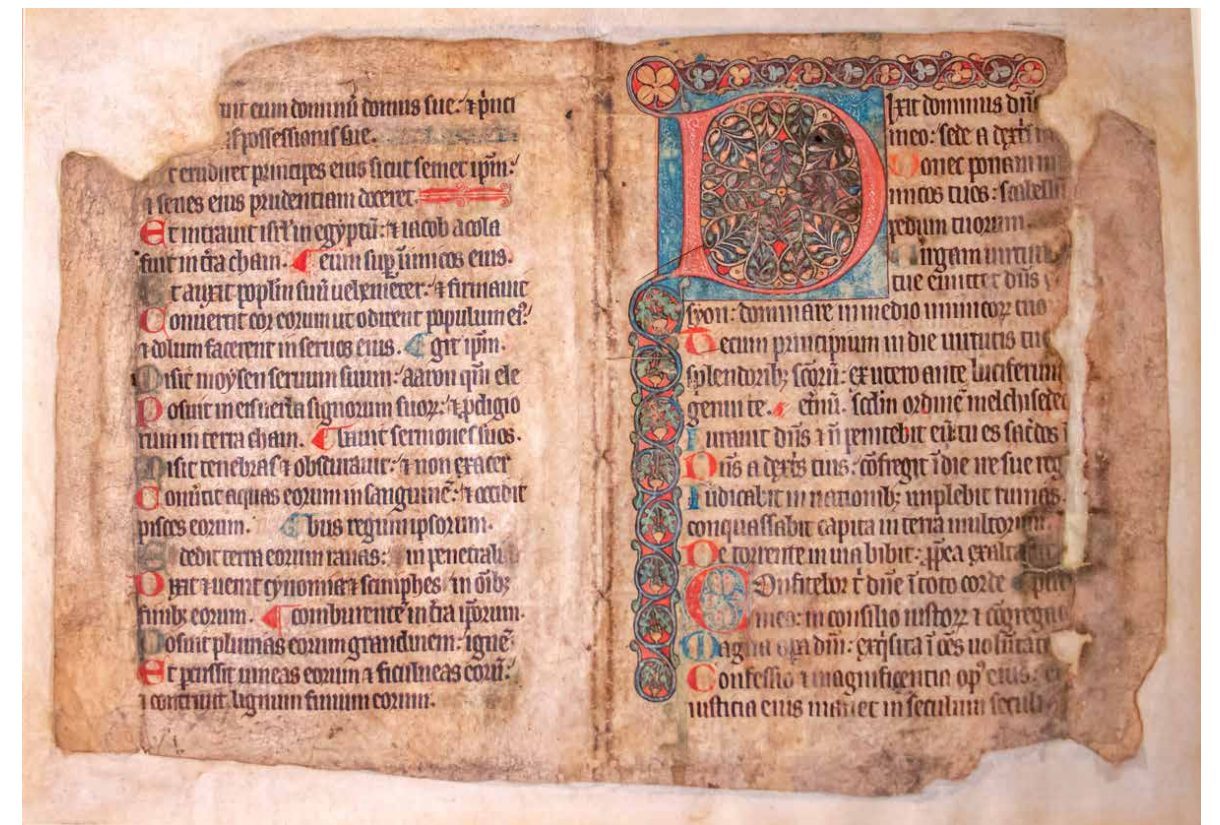 uit eum dominū domus sue: ⁊ p̄nci
possessionis sue.
t erudiret principes eius sicut semet ip̄m:
⁊ senes eius prudentiam doceret.
Et intrauit isrl̄ in egyptū: ⁊ iacob acola
fuit in t̄ra cham. ¶ eum sup̄ inimicos eius.
Et auxit poplm̄ suū uehementer: ⁊ firmauit
Conuertit cor eorum ut odirent populum ei⁹:
⁊ dolum facerent in seruos eius. ¶ git ip̄m.
Misit moysen seruum suum: aaron quē ele
Posuit in eis uerba signorum suoꝝ: ⁊ ꝓdigio
rum in terra cham. ¶ sermones suos.
Misit tenebras ⁊ obscurauit: ⁊ non exacer
Conūtit aquas eorum in sanguinē: ⁊ occidit
pisces eorum. ¶ bus regum ipsorum.
Et dedit terra eorum ranas: in penetrali
Dixit ⁊ uenit cynomia ⁊ sciniphes in oīb;
finib; eorum. ¶ comburentē in t̄ra ip̄orum.
Posuit pluuias eorum grandinem: ignē
Et percussit uineas eorum ⁊ ficulneas eorū:
⁊ contriuit lignum finium eorum.
Dixit dominus dn̄o
meo: sede a dext̄s
Donec ponam in
imicos tuos: scabellū
pedum tuorum.
Uirgam uirtutis
tue emittet dn̄s
syon: dominare in medio inimicoꝝ tuo
Tecum principium in die uirtutis tue
splendorib; sc̄orū: ex utero ante luciferum
genui te. ¶ etnū. scd̄m ordinē melchisedec
Iurauit dn̄s ⁊ n̄ penitebit eū: tu es sac̄dos ī
Dn̄s a dext̄s tuis: cōfregit ī die ire sue reg
Iudicabit in nationib; implebit ruinas
conquassabit capita in terra multorum.
De torrente in uia bibit: ꝓp̄ea exalta
Confitebor t̄ dn̄e ī toto corde
meo: in consilio iustoꝝ ⁊ cōgrega
Magna op̄a dn̄i: exq̄sita ī oēs uolūtate
Confessio ⁊ magnificentia op⁹ eius: et
iusticia eius manet in seculum seculi